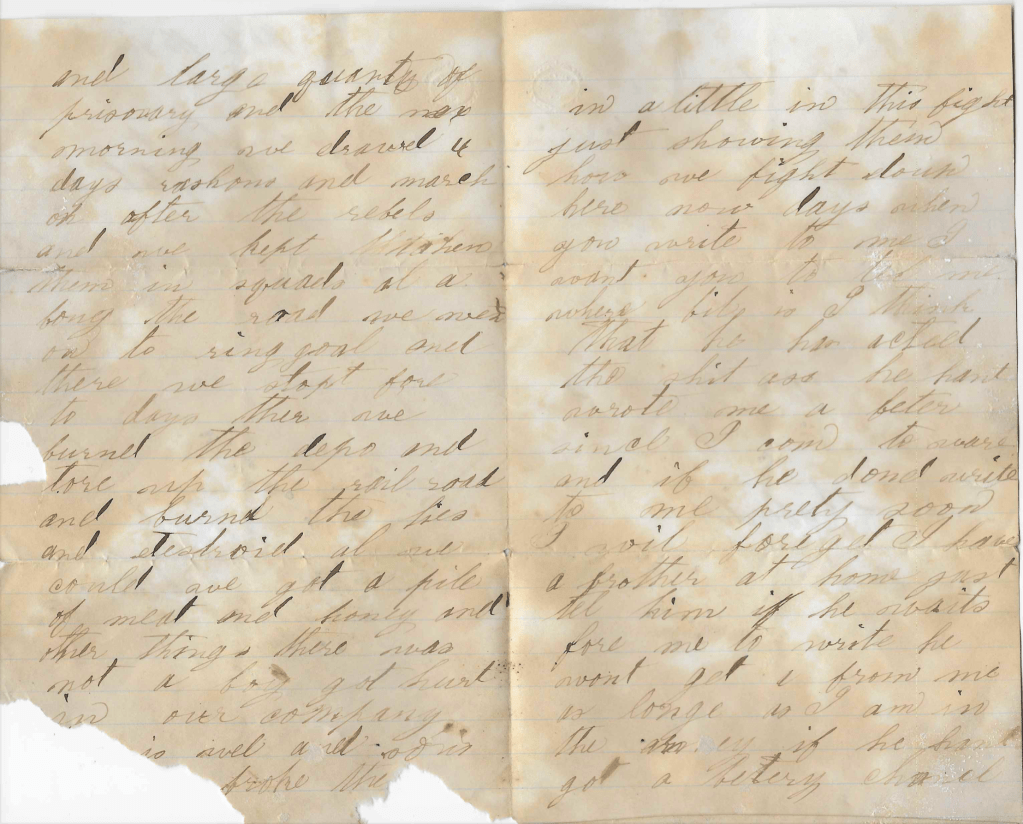 and large quanty of
prisonary and the nex
morning we drawd 4
days rashons and march
on after the rebels
and we kept
them in squads at a
long the road we went
on to ring goal and
there we stopt fore
to days ther we
burnd the depo and
tore up the rail road
and burnd the ties
and destroid al we
could we got a pile
of meat and honey and
other things there was
not a boy got hurt
in ouer company
is wel and so is
broke the
in a little in this fight
just showing them
how we fight down
here now days when
you write to me I
want you to tel me
where bily is I think
that he has acted
the shit ass he hant
wrote me a leter
since I com to ware
and if he dond write
to me prety soon
I wil foreget I have
a brother at home just
tel him if he waits
fore me to write he
wont get 1 from me
as longe as I am in
the if he hant
got a chanel